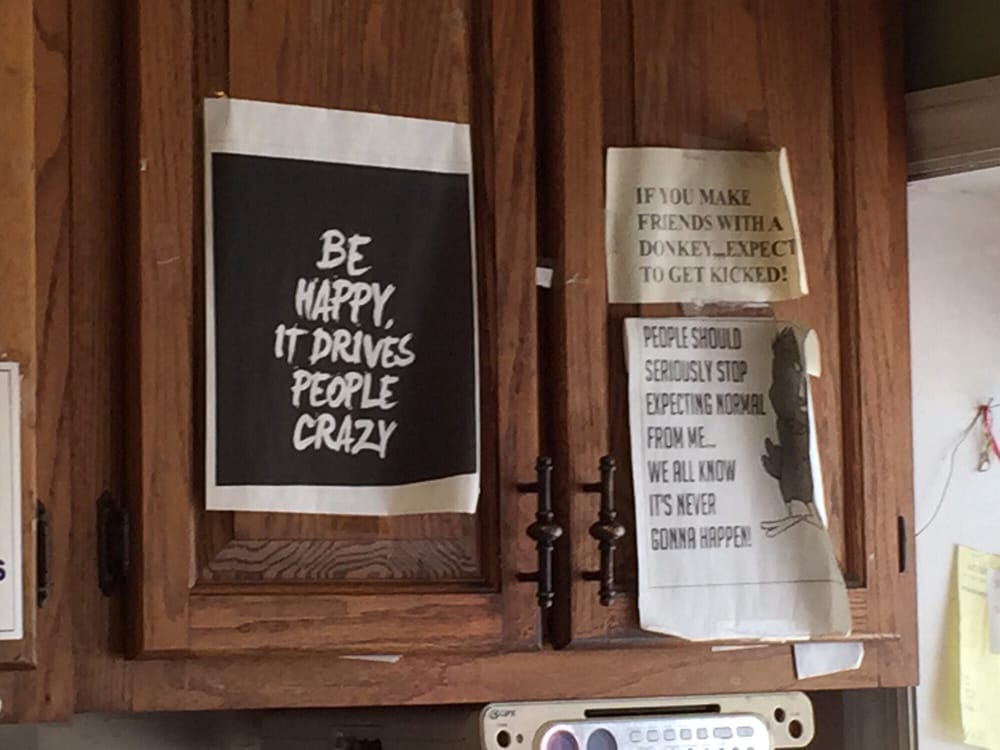 BE
HAPPY,
IT DRIVES
PEOPLE
CRAZY
IF YOU MAKE
FRIENDS WITH A
DONKEY...EXPECT
TO GET KICKED!
PEOPLE SHOULD
SERIOUSLY STOP
EXPECTING NORMAL
FROM ME...
WE ALL KNOW
IT'S NEVER
GONNA HAPPEN!
S